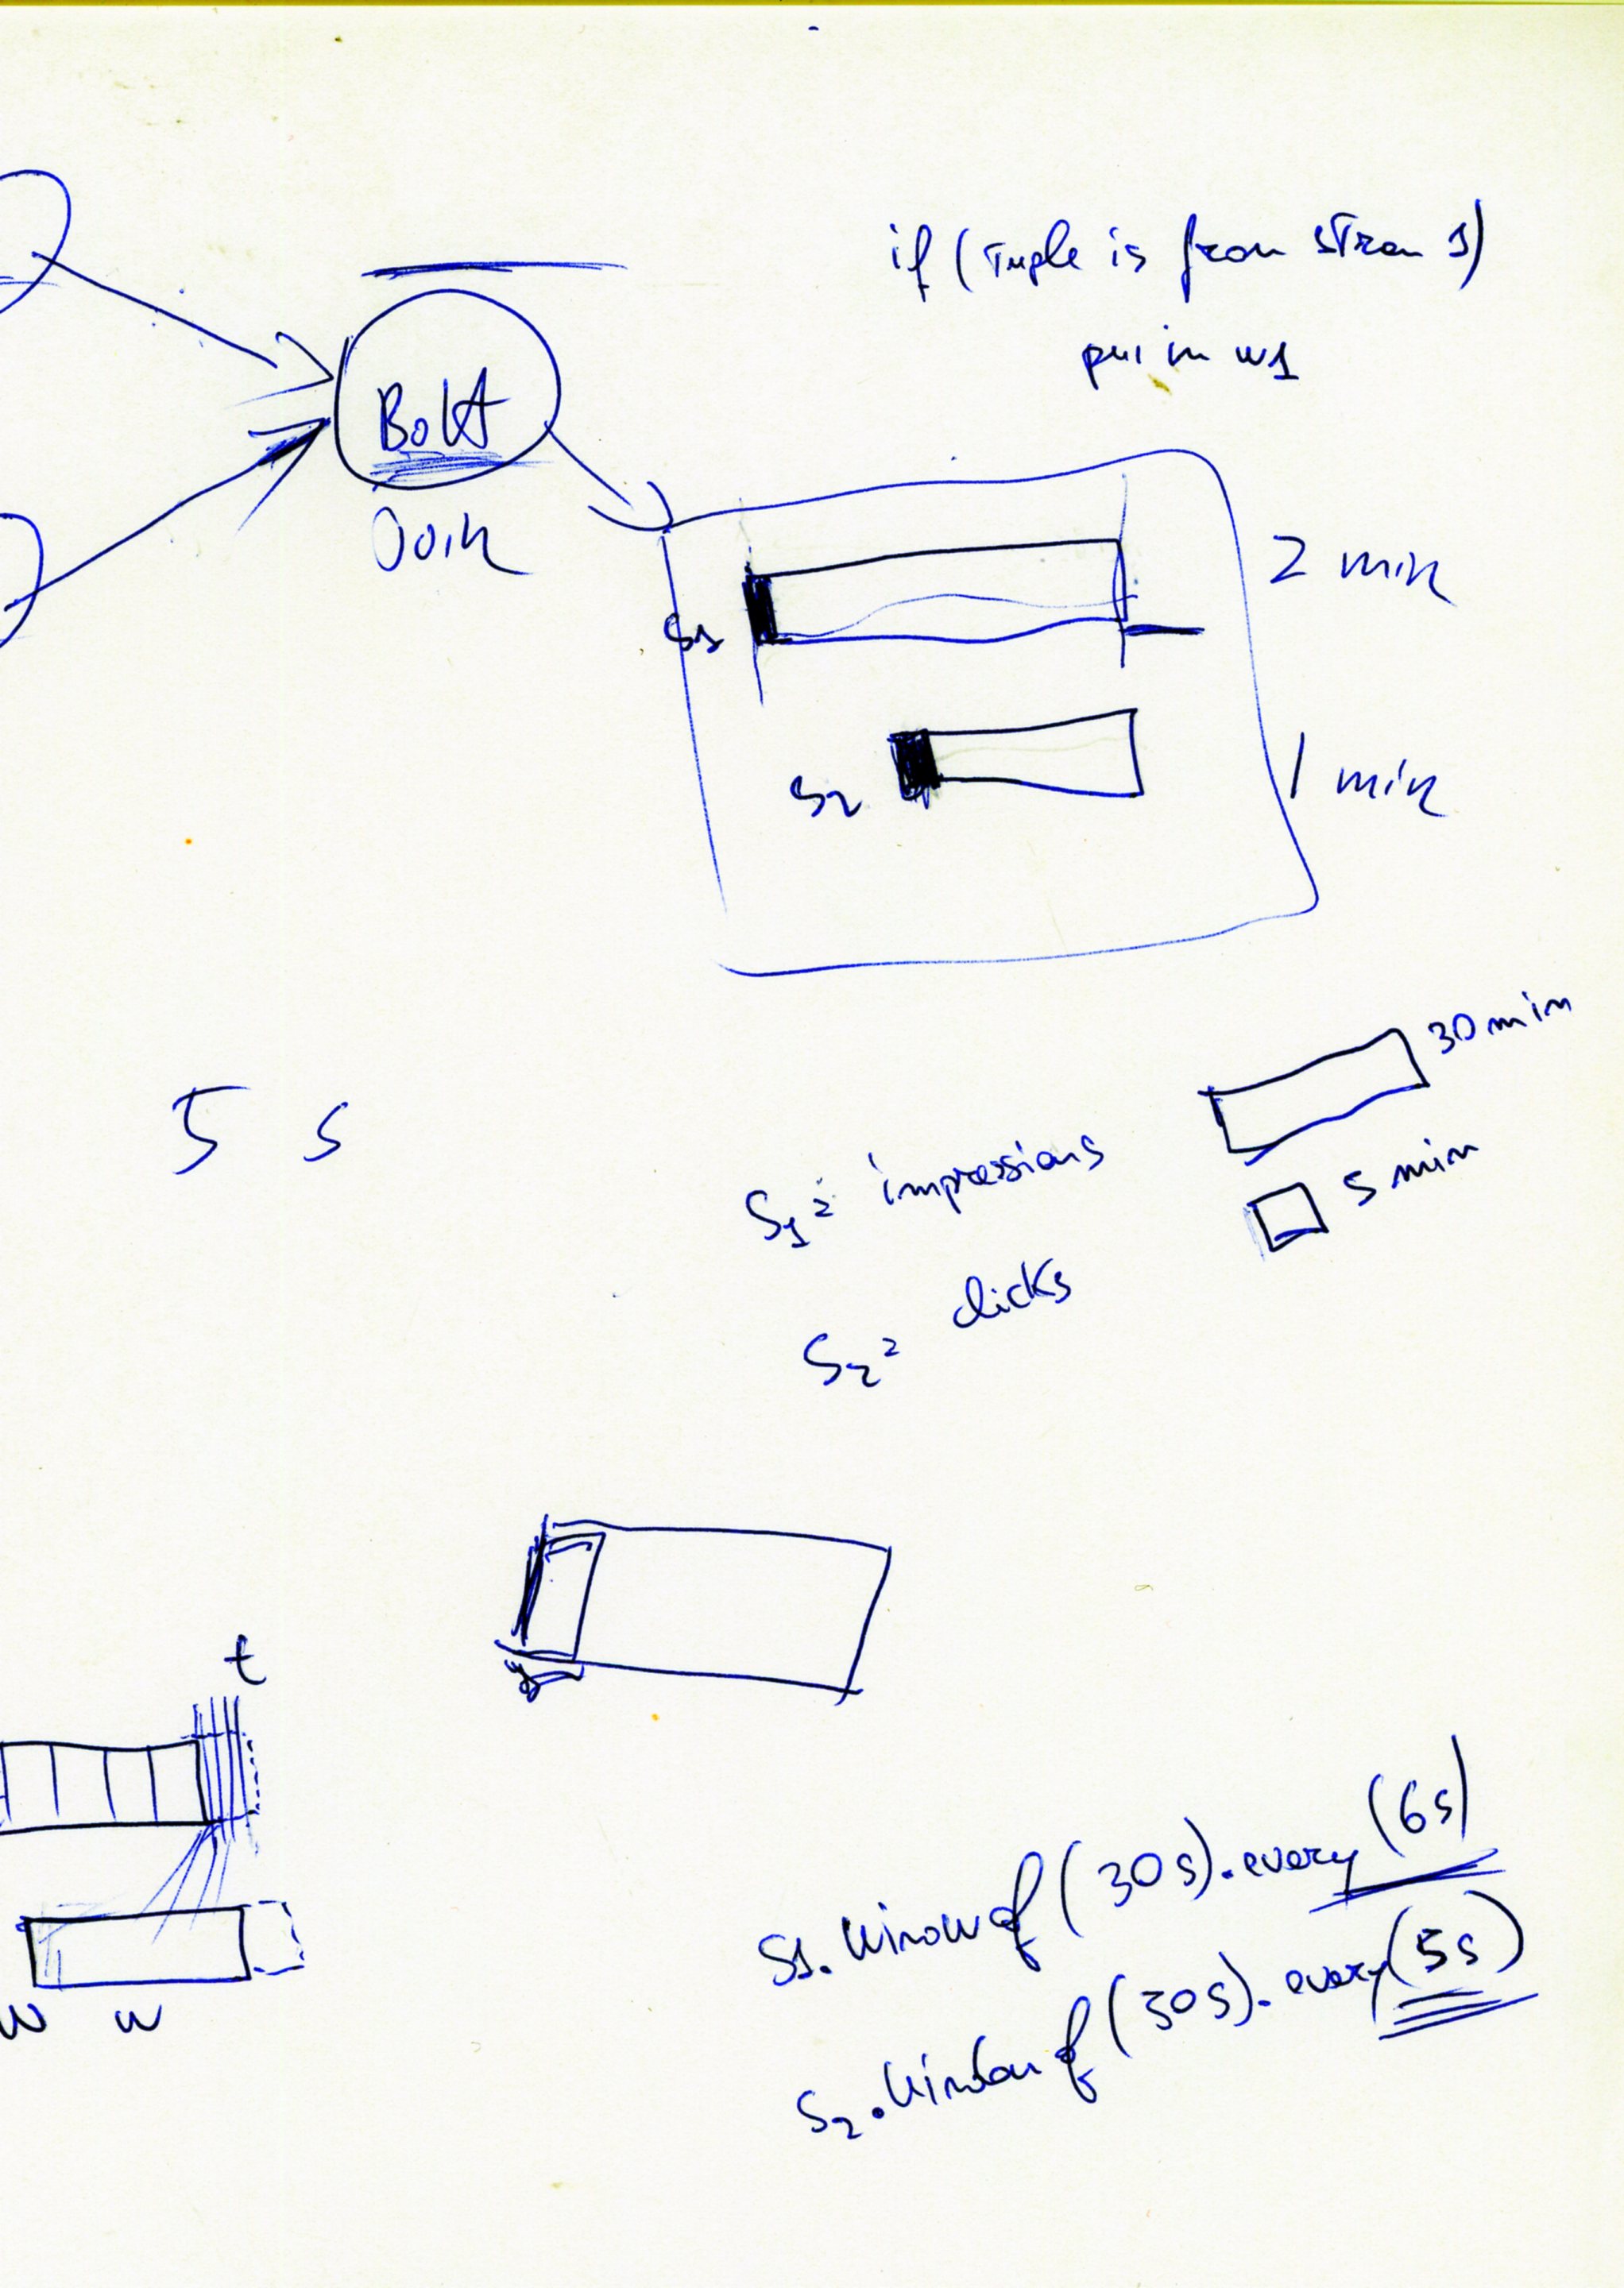 if (Tuple is from stream 1)
put in w1
Bolt
Join
2 min
S1
1 min
S2
30 min
5 s
S1 = impressions
5 min
S2 = clicks
t
S1. Window of (30s). every (6s)
S2. Window of (30s). every (5s)
w w